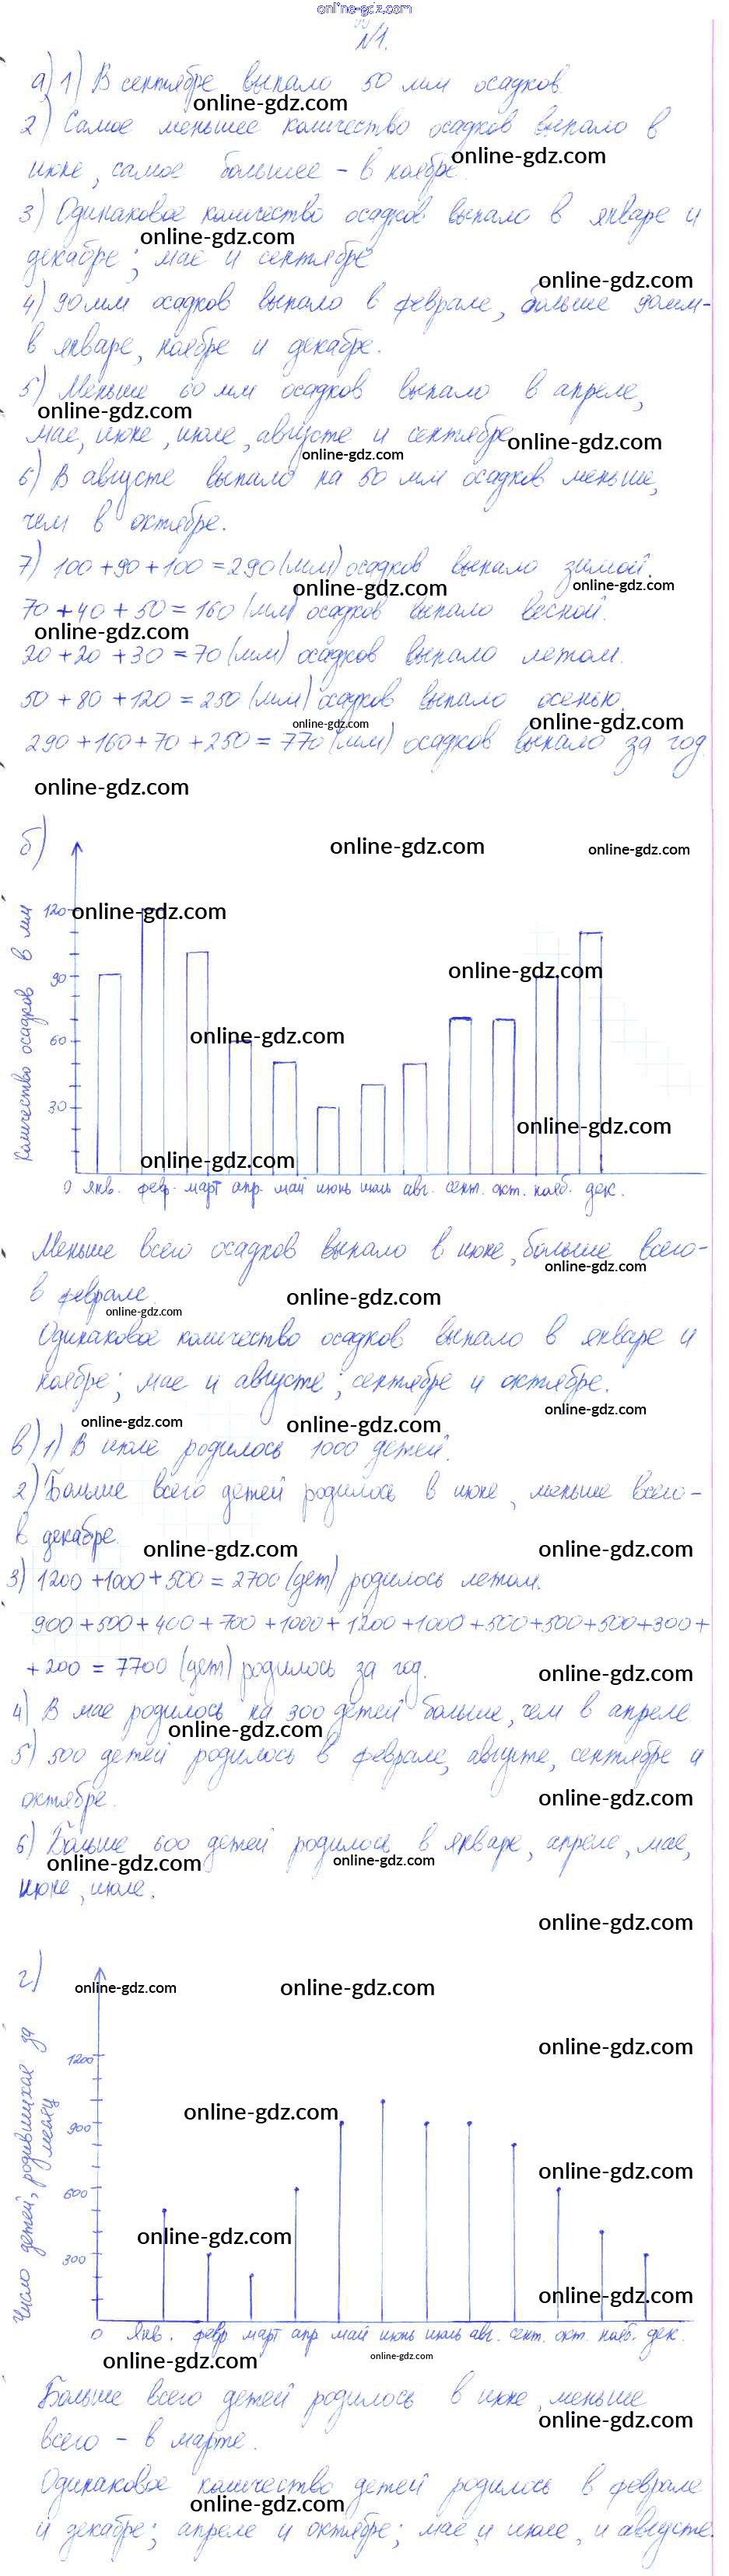 online-gdz.com
№1.
а) 1) В сентябре выпало 50 мм осадков.
online-gdz.com
2) Самое меньшее количество осадков выпало в
online-gdz.com
июне, самое большее – в ноябре.
3) Одинаковое количество осадков выпало в январе и
online-gdz.com
декабре; мае и сентябре
online-gdz.com
4) 90 мм осадков выпало в феврале, больше 90 мм-
в январе, ноябре и декабре.
5) Меньше 60 мм осадков выпало в апреле,
online-gdz.com
мае, июне, июле, августе и сентябре.
online-gdz.com
online-gdz.com
6) В августе выпало на 50 мм осадков меньше,
чем в октябре.
7) 100+90+100=290 (мм) осадков выпало зимой.
online-gdz.com
online-gdz.com
70+40+50=160 (мм) осадков выпало весной.
online-gdz.com
20+20+30=70 (мм) осадков выпало летом.
50+80+120=250 (мм) осадков выпало осенью.
online-gdz.com
online-gdz.com
290+160+70+250=770 (мм) осадков выпало за год.
online-gdz.com
б)
online-gdz.com
online-gdz.com
Количество осадков в мм
120
online-gdz.com
90
online-gdz.com
60
online-gdz.com
30
online-gdz.com
online-gdz.com
0 янв. февр. март апр. май июнь июль авг. сент. окт. нояб. дек.
Меньше всего осадков выпало в июне, больше всего-
online-gdz.com
в феврале.
online-gdz.com
online-gdz.com
Одинаковое количество осадков выпало в январе и
ноябре; мае и августе; сентябре и октябре.
online-gdz.com
online-gdz.com
online-gdz.com
в) 1) В июле родилось 1000 детей.
2) Больше всего детей родилось в июне, меньше всего-
в декабре.
online-gdz.com
online-gdz.com
3) 1200+1000+500=2700 (дет) родилось летом.
900+500+400+700+1000+1200+1000+500+500+500+300+
+200=7700 (дет) родилось за год.
online-gdz.com
4) В мае родилось на 300 детей больше, чем в апреле.
online-gdz.com
5) 500 детей родилось в феврале, августе, сентябре и
октябре.
online-gdz.com
6) Больше 600 детей родилось в январе, апреле, мае,
online-gdz.com
online-gdz.com
июне, июле.
online-gdz.com
г)
online-gdz.com
online-gdz.com
Число детей, родившихся за
месяц
online-gdz.com
1200
900
online-gdz.com
online-gdz.com
600
online-gdz.com
300
online-gdz.com
0 янв. февр март апр май июнь июль авг. сент. окт. нояб. дек.
online-gdz.com
online-gdz.com
Больше всего детей родилось в июне, меньше
online-gdz.com
всего – в марте.
Одинаковое количество детей родилось в феврале
online-gdz.com
и декабре; апреле и октябре; мае, и июле, и августе.